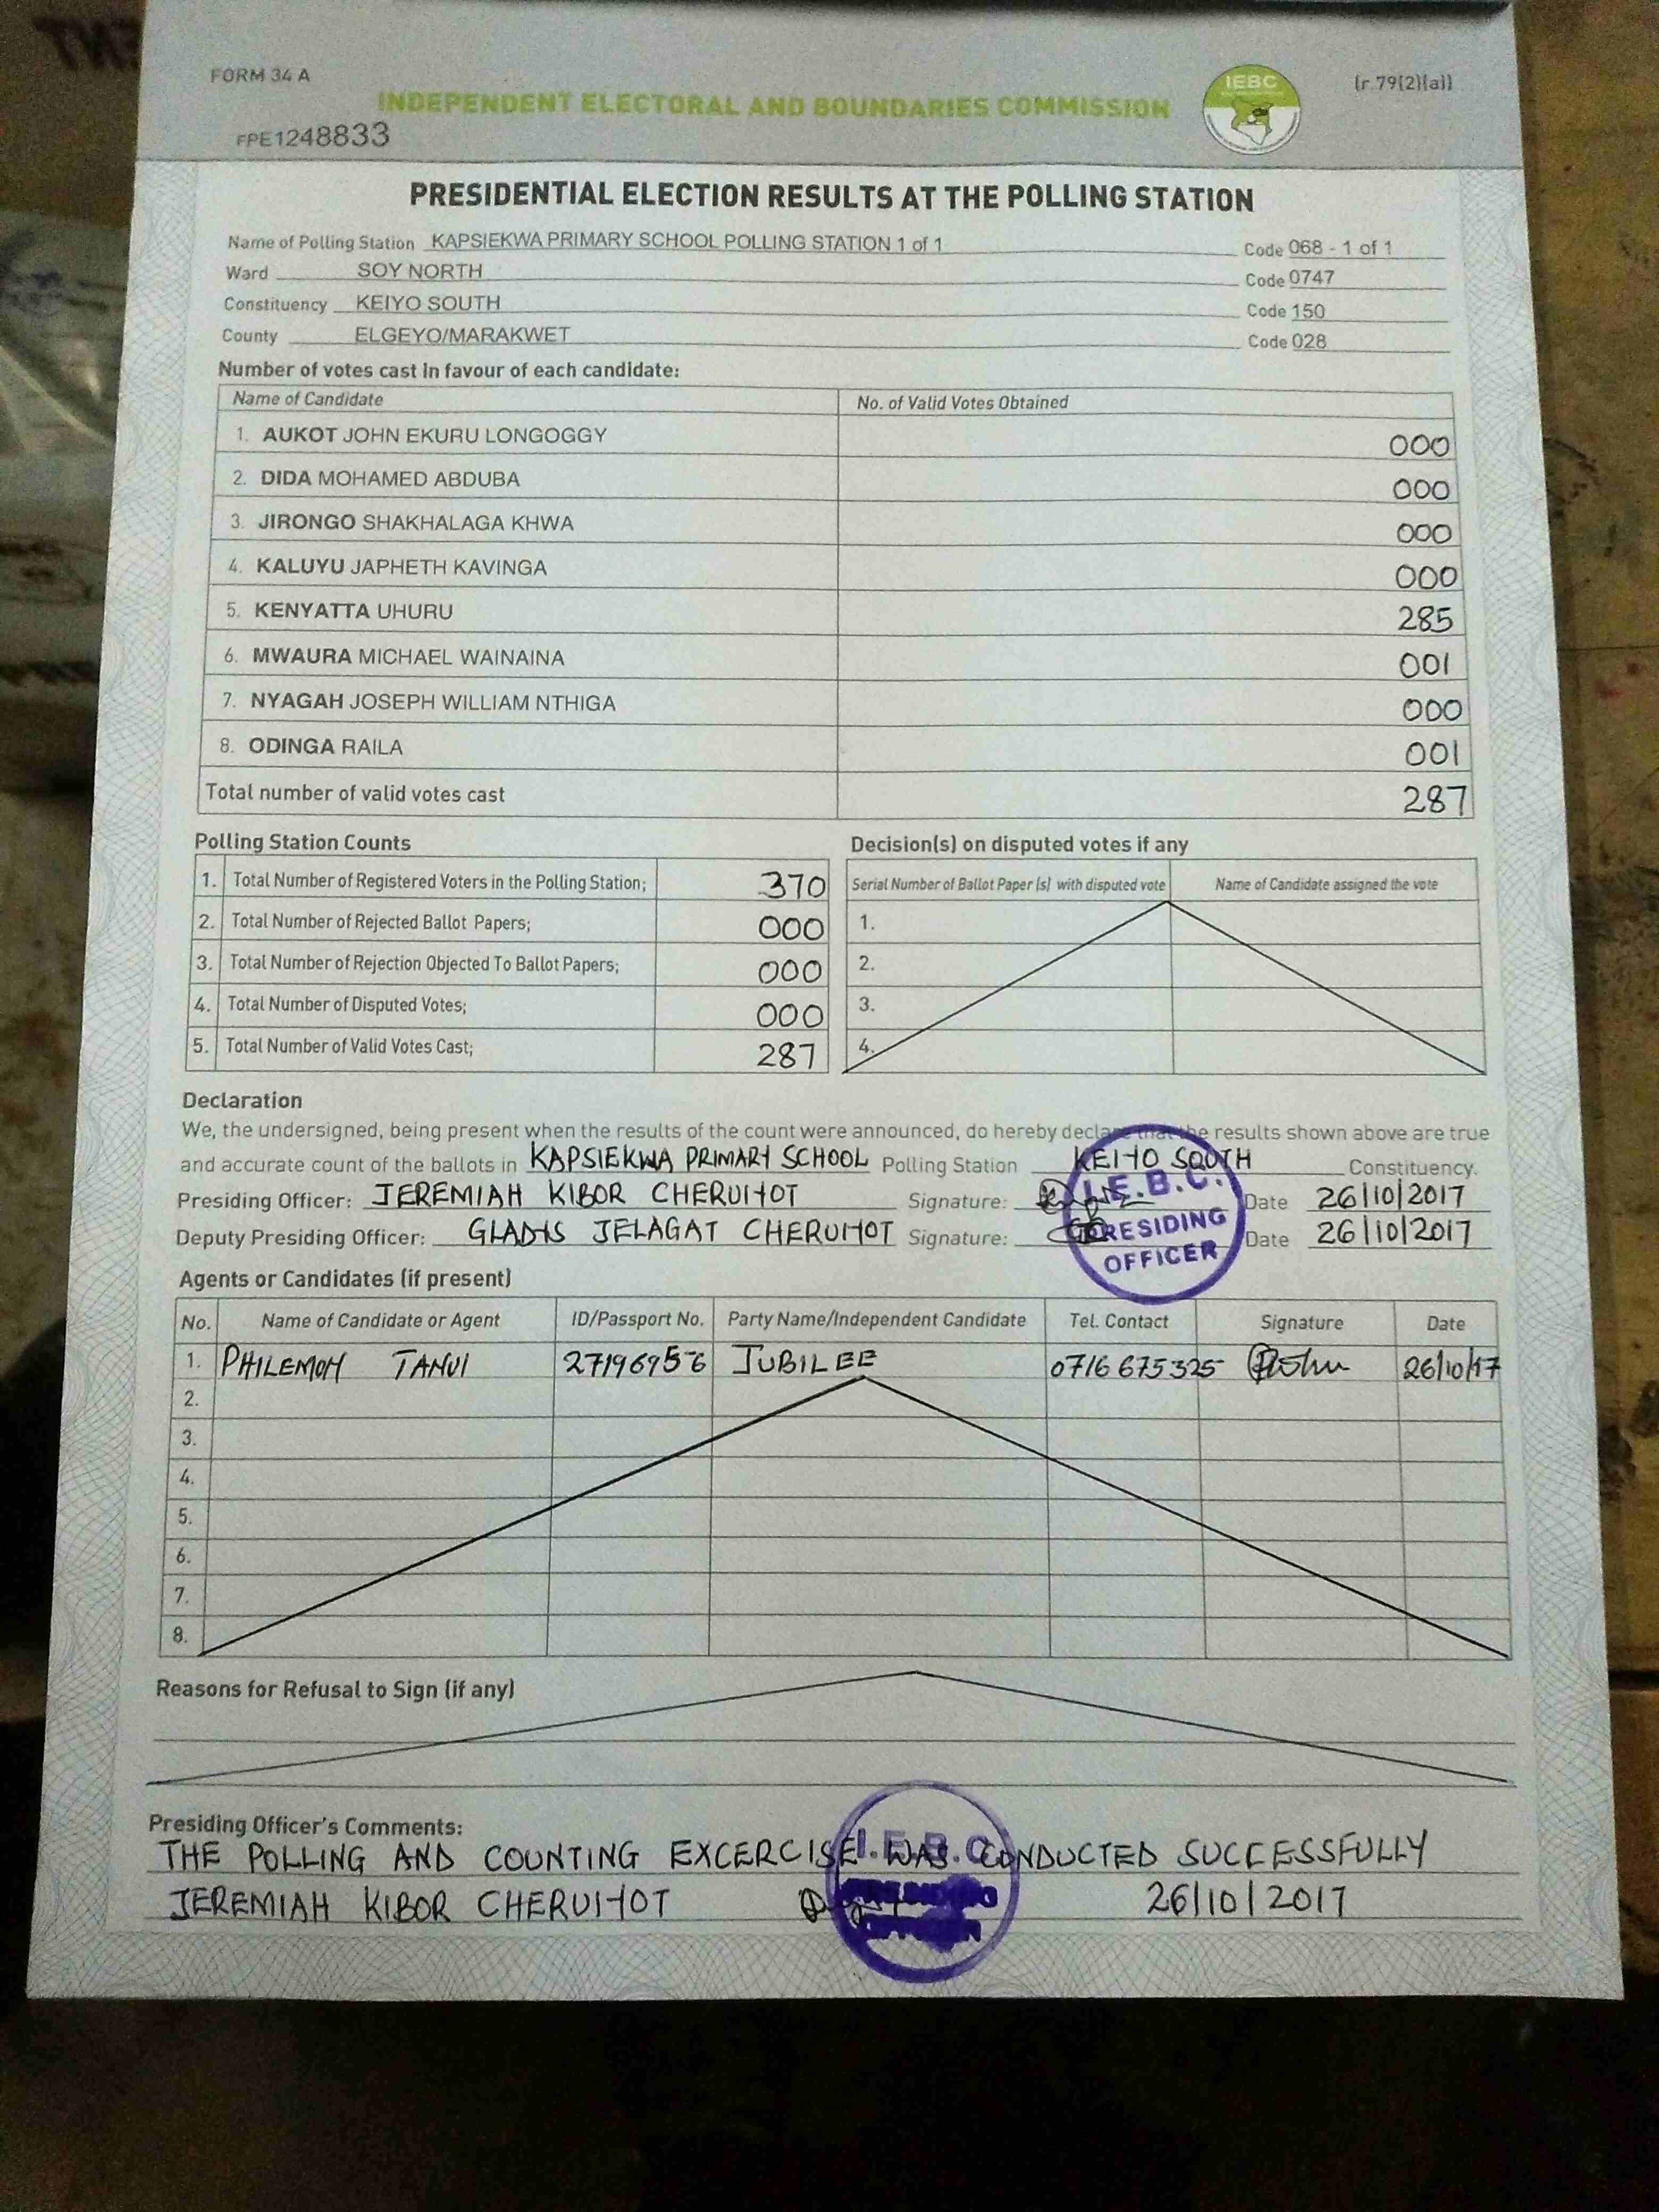 FORM 34 A
INDEPENDENT ELECTORAL AND BOUNDARIES COMMISSION
IEBC
(r.79(2)(a))
FPE1248833
PRESIDENTIAL ELECTION RESULTS AT THE POLLING STATION
Name of Polling Station KAPSIEKWA PRIMARY SCHOOL POLLING STATION 1 of 1 Code 068 - 1 of 1
Ward SOY NORTH Code 0747
Constituency KEIYO SOUTH Code 150
County ELGEYO/MARAKWET Code 028
Number of votes cast in favour of each candidate:
Name of Candidate No. of Valid Votes Obtained
1. AUKOT JOHN EKURU LONGOGGY 000
2. DIDA MOHAMED ABDUBA 000
3. JIRONGO SHAKHALAGA KHWA 000
4. KALUYU JAPHETH KAVINGA 000
5. KENYATTA UHURU 285
6. MWAURA MICHAEL WAINAINA 001
7. NYAGAH JOSEPH WILLIAM NTHIGA 000
8. ODINGA RAILA 001
Total number of valid votes cast 287
Polling Station Counts
1. Total Number of Registered Voters in the Polling Station; 370
2. Total Number of Rejected Ballot Papers; 000
3. Total Number of Rejection Objected To Ballot Papers; 000
4. Total Number of Disputed Votes; 000
5. Total Number of Valid Votes Cast; 287
Decision(s) on disputed votes if any
Serial Number of Ballot Paper (s) with disputed vote Name of Candidate assigned the vote
1.
2.
3.
4.
Declaration
We, the undersigned, being present when the results of the count were announced, do hereby declare that the results shown above are true
and accurate count of the ballots in KAPSIEKWA PRIMARY SCHOOL Polling Station KEIYO SOUTH Constituency.
Presiding Officer: JEREMIAH KIBOR CHERUIYOT Signature: Date 26/10/2017
Deputy Presiding Officer: GLADYS JELAGAT CHERUIYOT Signature: Date 26/10/2017
I.E.B.C.
PRESIDING
OFFICER
Agents or Candidates (if present)
No. Name of Candidate or Agent ID/Passport No. Party Name/Independent Candidate Tel. Contact Signature Date
1. PHILEMON TANUI 27196956 JUBILEE 0716 675325 26/10/17
2.
3.
4.
5.
6.
7.
8.
Reasons for Refusal to Sign (if any)
Presiding Officer's Comments:
THE POLLING AND COUNTING EXCERCISE WAS CONDUCTED SUCCESSFULLY
JEREMIAH KIBOR CHERUIYOT 26/10/2017
I.E.B.C